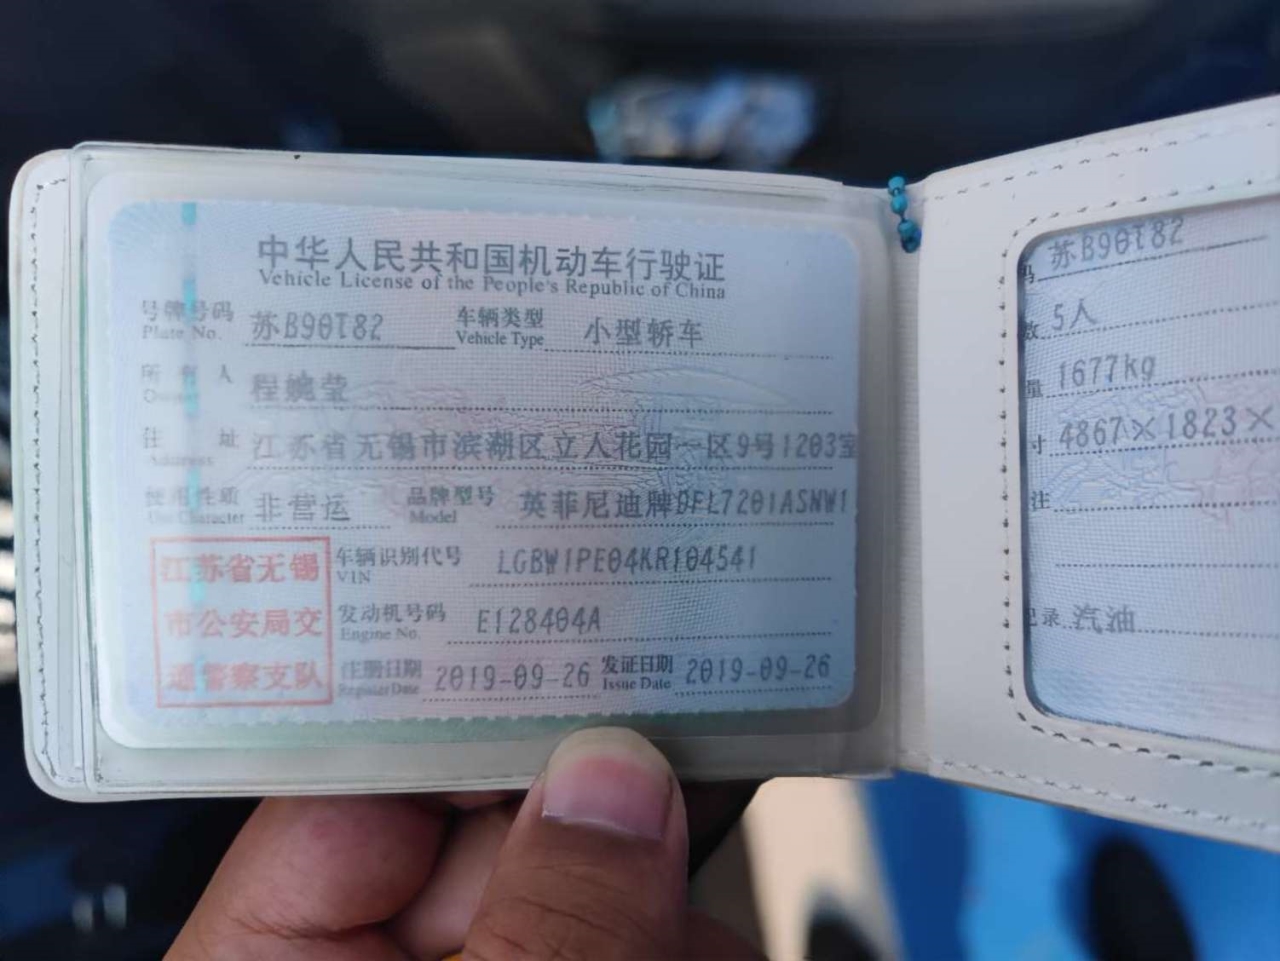 中华人民共和国机动车行驶证
Vehicle License of the People's Republic of China
号牌号码 苏B90T82 车辆类型 小型轿车
Plate No. Vehicle Type
所有人 程婉莹
Owner
住址 江苏省无锡市滨湖区立人花园一区9号1203室
Address
使用性质 非营运 品牌型号 英菲尼迪牌DFL7201ASNW1
Use Character Model
江苏省无锡
市公安局交
通警察支队
车辆识别代号 LGBW1PE04KR104541
VIN
发动机号码 E128404A
Engine No.
注册日期 2019-09-26 发证日期 2019-09-26
Register Date Issue Date
码 苏B90T82
数 5人
量 1677kg
寸 4867×1823×
注
记录 汽油